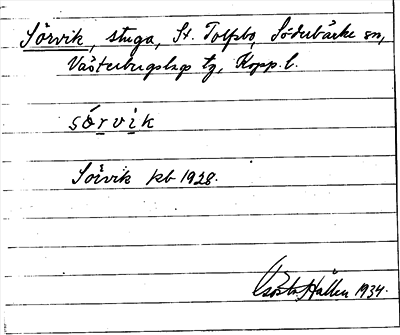 Sörvik, stuga, St. Tolfsbo, Söderbärke sn,
Västerbergslags tg, Kopp. l.
sö́rvik
Sörvik kb 1928.
Gösta Hallén 1934.